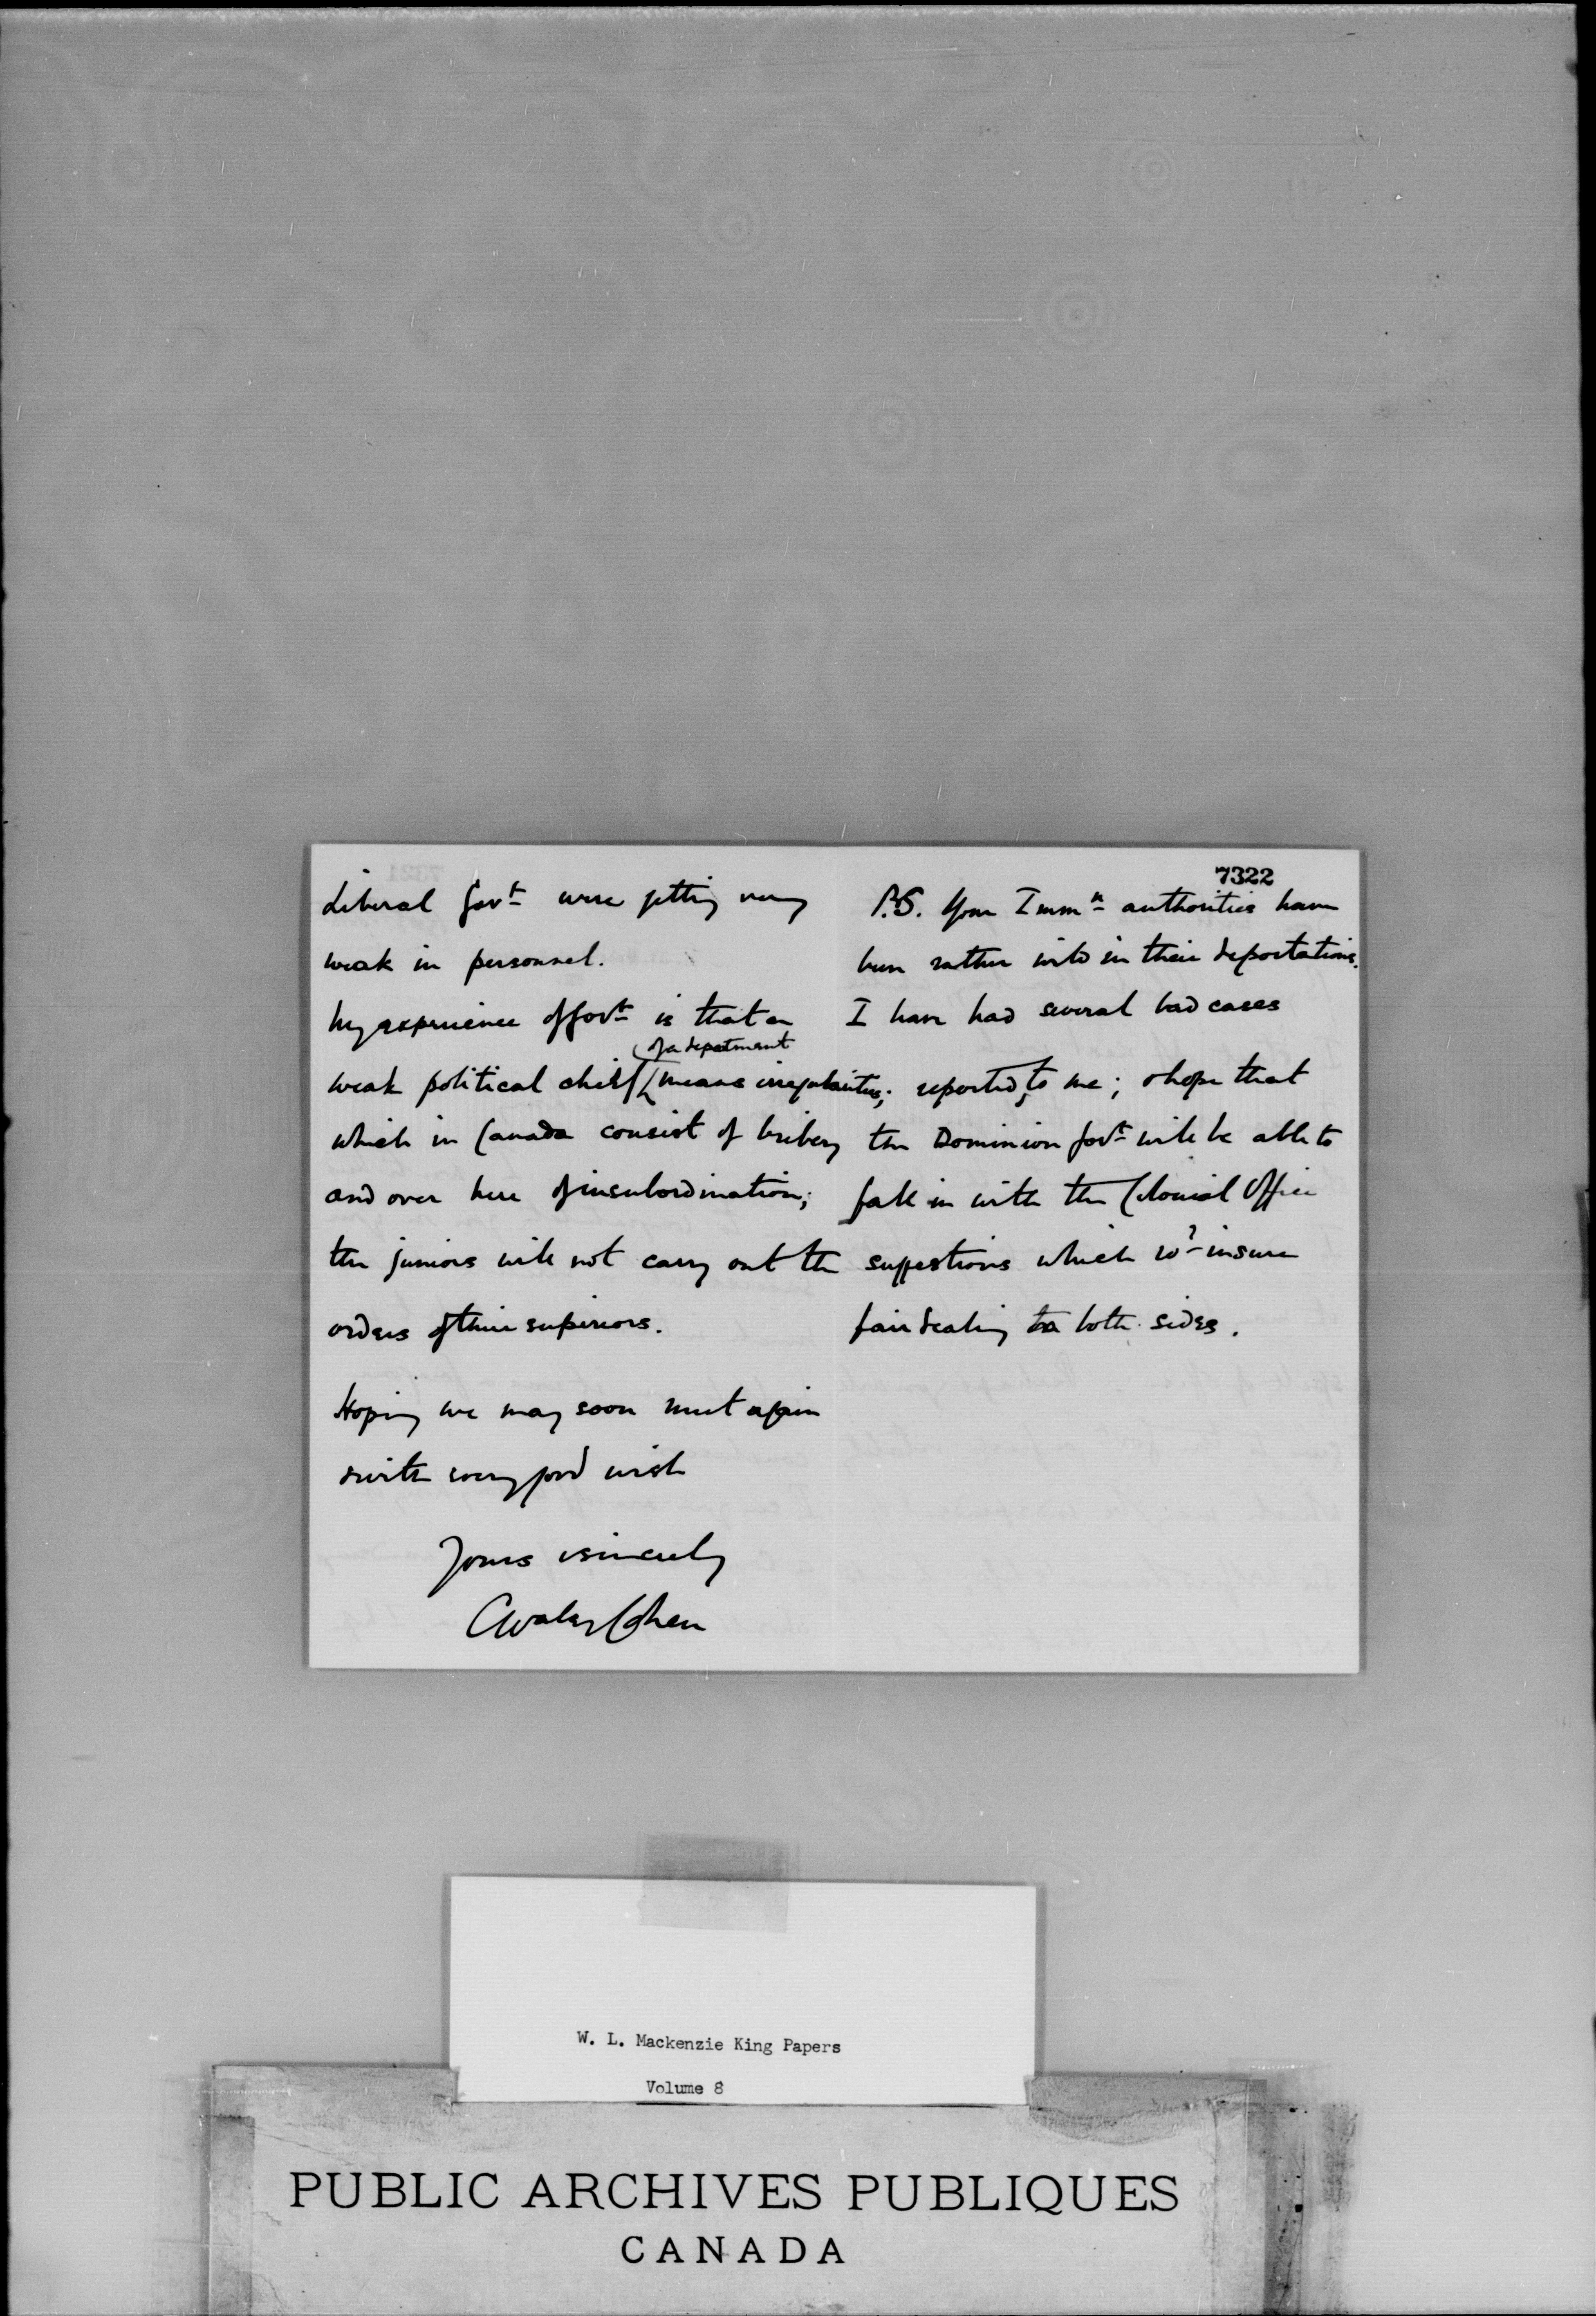 Liberal Govt were getting very
weak in personnel.
My experience of Govt is that a
weak political chief (of a department
means irregularities;
which in Canada consist of bribery
and over here of insubordination;
the juniors will not carry out the
orders of their superiors.
Hoping we may soon meet again
& with every good wish
Yours v sincerely
C Waley Cohen
7322
P.S. Your Immn authorities have
been rather wild in their deportations.
I have had several bad cases
reported to me; & hope that
the Dominion Govt will be able to
fall in with the Colonial Office
suggestions which wd insure
fair dealing to both sides.
W. L. Mackenzie King Papers
Volume 8
PUBLIC ARCHIVES PUBLIQUES
CANADA